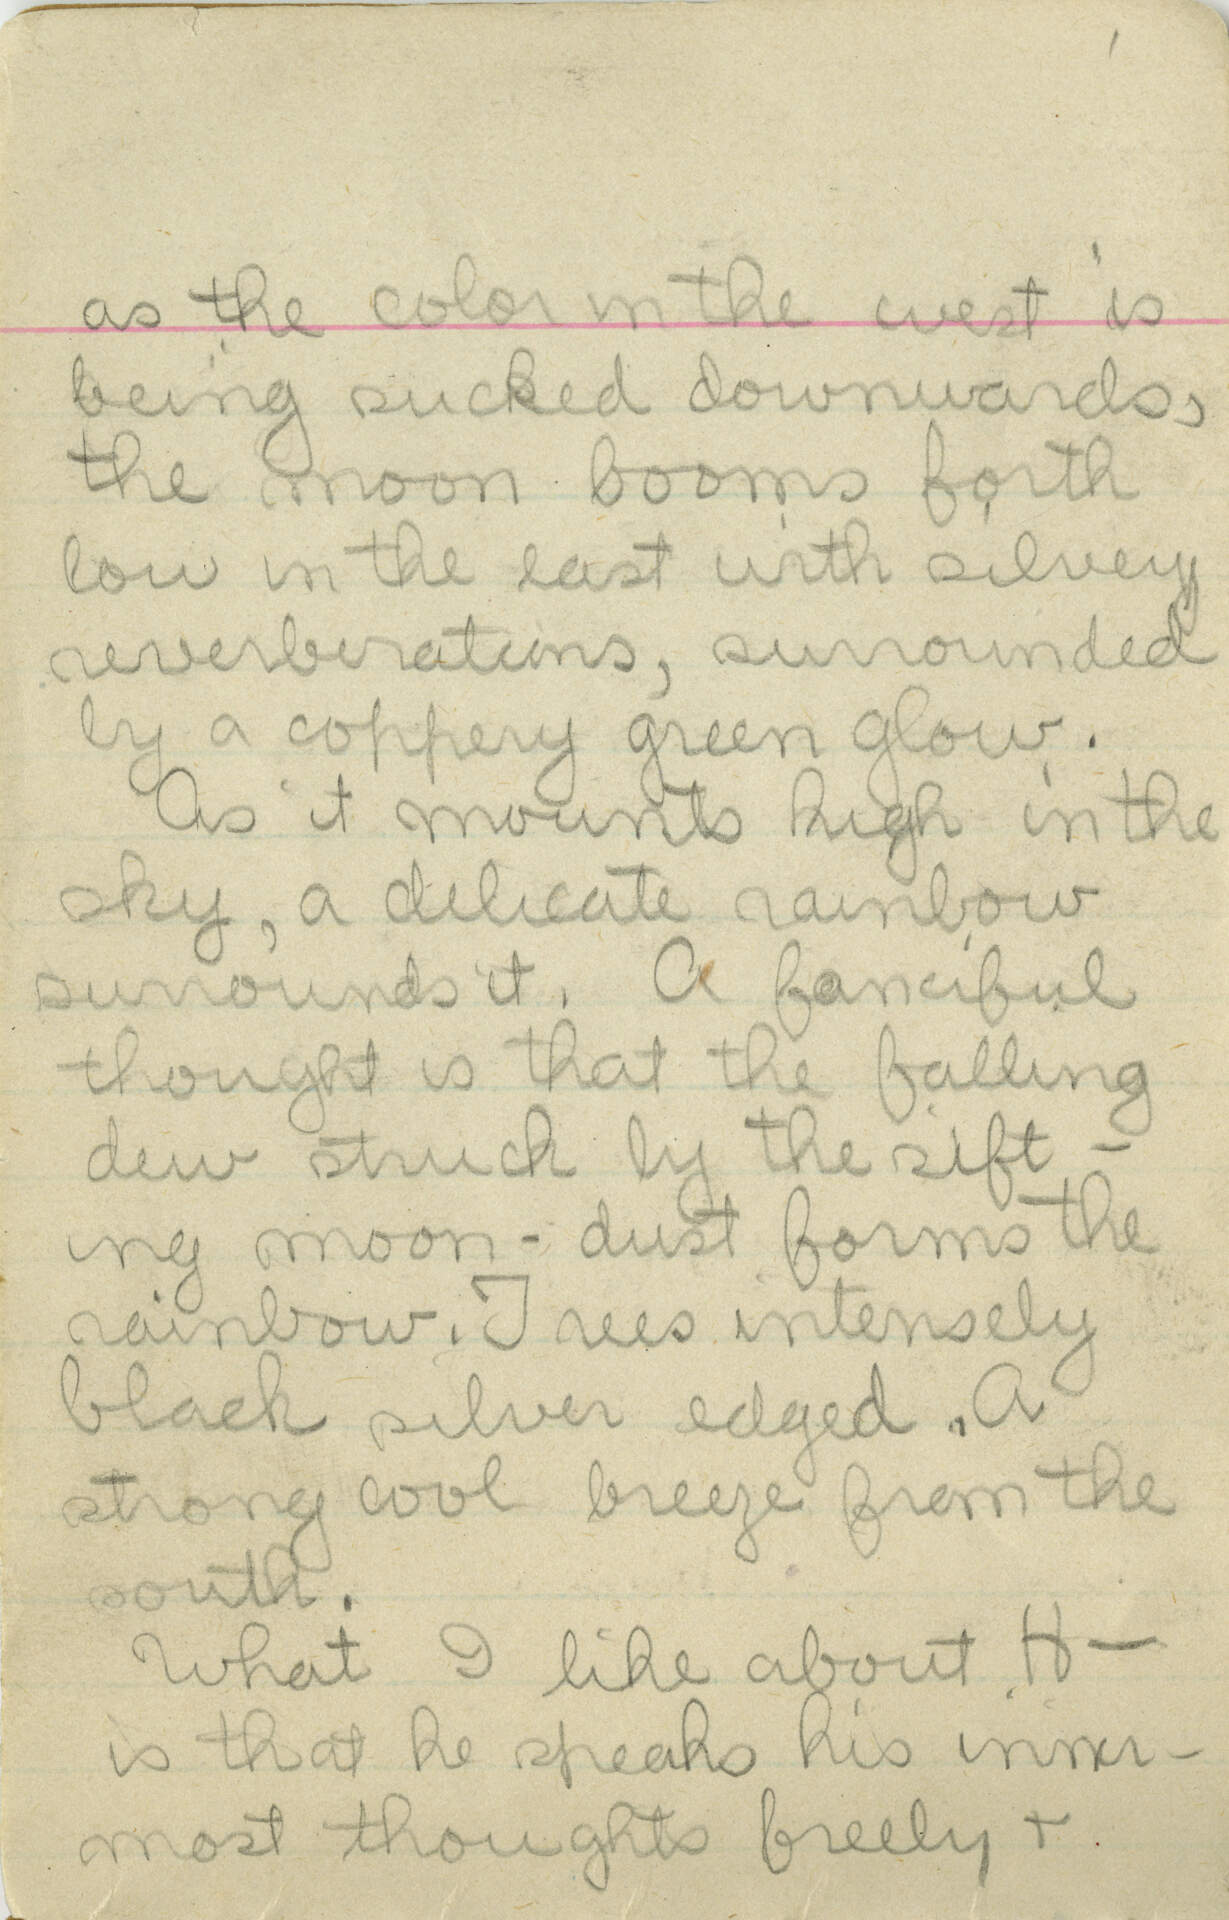 as the color in the west is
being sucked downwards,
the moon booms forth
low in the east with silvery
reverberations, surrounded
by a coppery green glow.
As it mounts high in the
sky, a delicate rainbow
surrounds it. A fanciful
thought is that the falling
dew struck by the sift-
ing moon-dust forms the
rainbow. Trees intensely
black silver edged. A
strong cool breeze from the
south.
What I like about H—
is that he speaks his inner-
most thoughts freely +